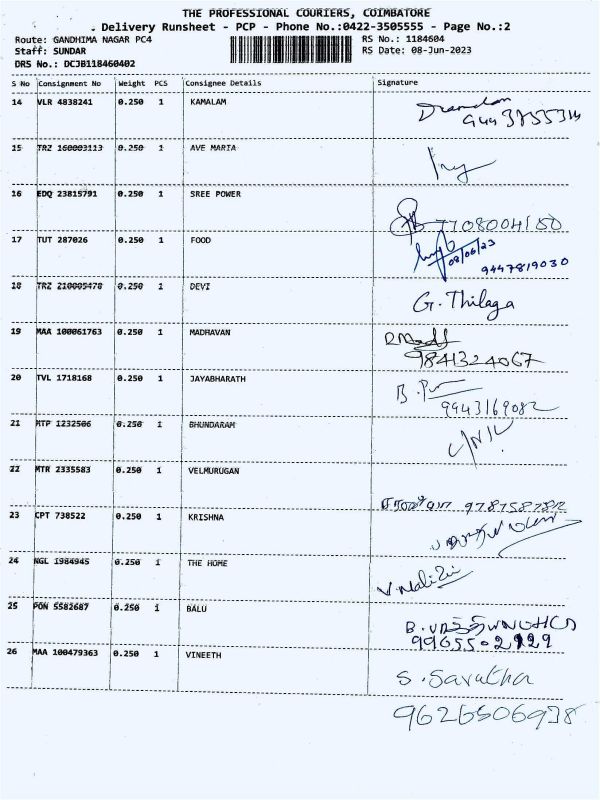 THE PROFESSIONAL COURIERS, COIMBATORE
Delivery Runsheet - PCP - Phone No.:0422-3505555 - Page No.:2
Route: GANDHIMA NAGAR PC4
RS No.: 1184604
Staff: SUNDAR
RS Date: 08-Jun-2023
DRS No.: DCJB118460402
S No Consignment No Weight PCS Consignee Details Signature
14 VLR 4838241 0.250 1 KAMALAM
15 TRZ 160003113 0.250 1 AVE MARIA
16 EDQ 23815791 0.250 1 SREE POWER
7708004180
17 TUT 287026 0.250 1 FOOD
08/06/23
9447819030
18 TRZ 210005478 0.250 1 DEVI G. Thilaga
19 MAA 100061763 0.250 1 MADHAVAN
9841324067
20 TVL 1718168 0.250 1 JAYABHARATH
9943169082
21 MTP 1232506 0.250 1 BHUNDARAM
22 MTR 2335583 0.250 1 VELMURUGAN
23 CPT 738522 0.250 1 KRISHNA
24 NGL 1984945 0.250 1 THE HOME
25 PON 5582687 0.250 1 BALU
26 MAA 100479363 0.250 1 VINEETH
S. Savatha
9626506938